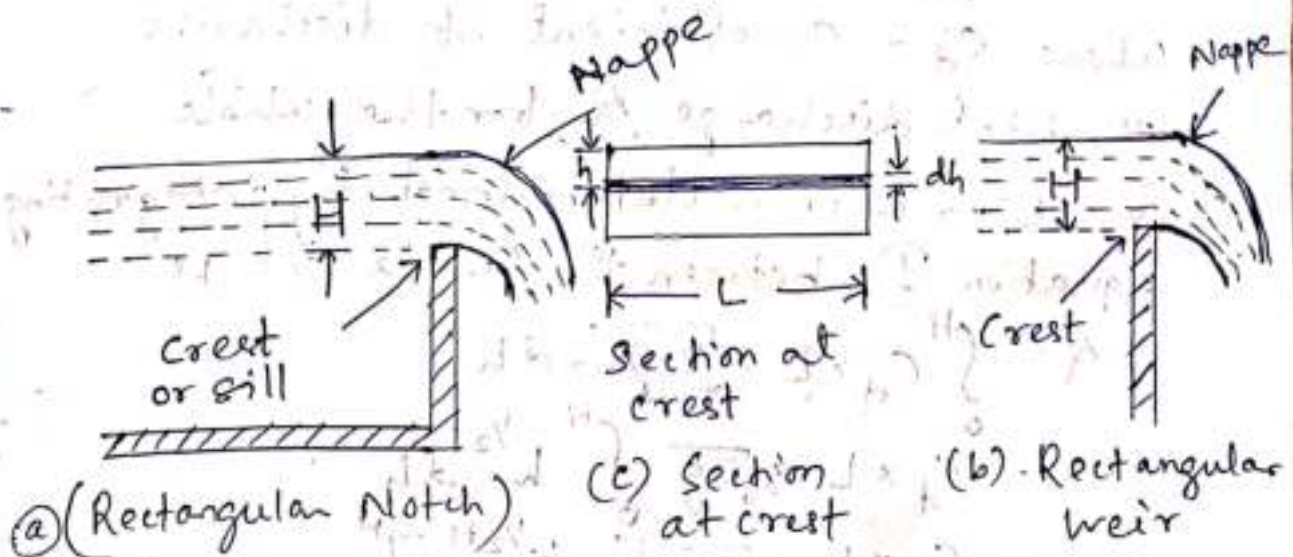 Nappe
H
Crest
or sill
(a) (Rectangular Notch)
h
dh
L
Section at
crest
(c) Section
at crest
Nappe
H
Crest
(b). Rectangular
weir